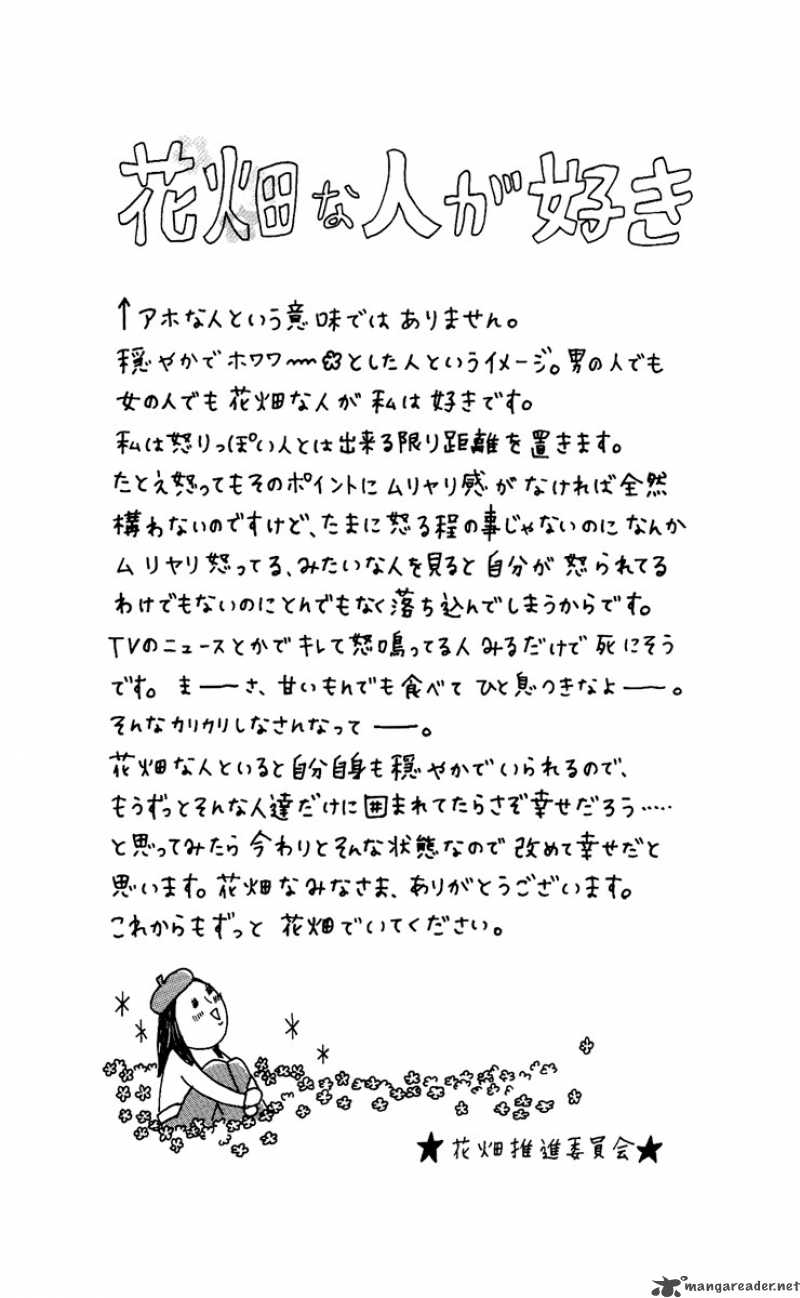 花畑な人が好き
↑アホな人という意味ではありません。
穏やかでホワワ〜〜✿とした人というイメージ。男の人でも
女の人でも花畑な人が私は好きです。
私は怒りっぽい人とは出来る限り距離を置きます。
たとえ怒ってもそのポイントにムリヤリ感がなければ全然
構わないのですけど、たまに怒る程の事じゃないのになんか
ムリヤリ怒ってる、みたいな人を見ると自分が怒られてる
わけでもないのにとんでもなく落ち込んでしまうからです。
TVのニュースとかでキレて怒鳴ってる人みるだけで死にそう
です。まーーさ、甘いもんでも食べてひと息つきなよーー。
そんなカリカリしなさんなってーー。
花畑な人といると自分自身も穏やかでいられるので、
もうずっとそんな人達だけに囲まれてたらさぞ幸せだろう……
と思ってみたら今わりとそんな状態なので改めて幸せだと
思います。花畑なみなさま、ありがとうございます。
これからもずっと花畑でいてください。
★花畑推進委員会★
mangareader.net